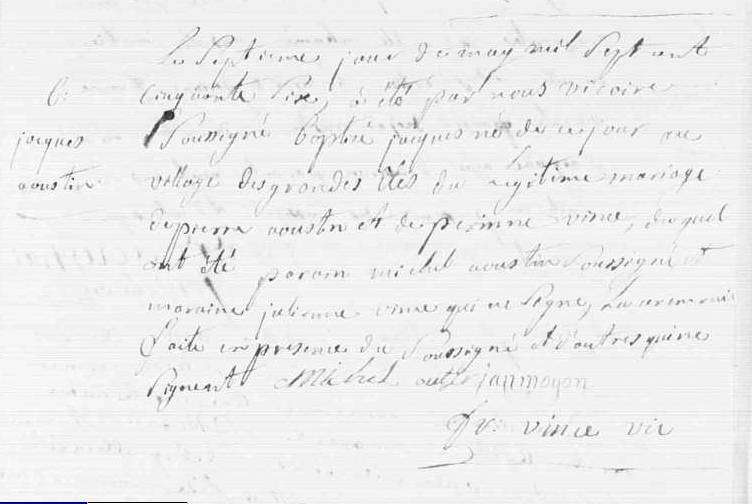 Le Septieme jour de may mil Sept cent
B: cinquante Six, a été par nous vicaire
jacques Soussigné baptisé jacques né de ce jour au
aoustin village des grandes iles du legitime mariage
de pierre aoustin et de perinne vince, duquel
ont été parain michel aoustin Soussigné et
maraine julienne vince qui ne Signe, La ceremonie
faite en presence du Soussigné et d'autres qui ne
Signent Michel jan moyon
vince vic